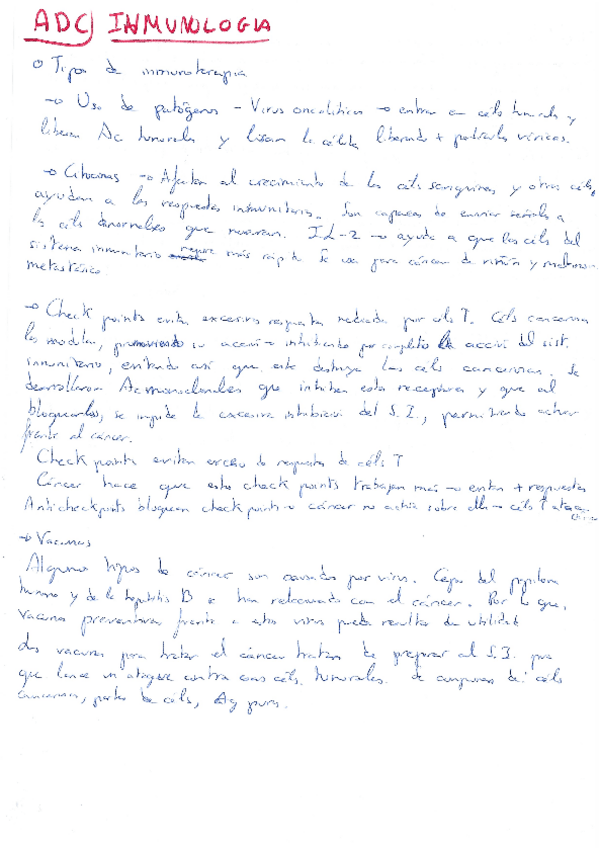 ADC) INMUNOLOGIA
o Tipos de inmunoterapia
→ Uso de patógenos - Virus oncolíticos → entran en céls tumorales y
liberan Ac tumorales y lisan la célula liberando + partículas víricas.
→ Citocinas → Afectan al crecimiento de las céls sanguíneas y otras céls,
ayudan a las respuestas inmunitarias. Son capaces de enviar señales a
las céls anormales que mueran. IL-2 → ayuda a que las céls del
sistema inmunitario más rápido. Se usa para cáncer de riñón y melanoma
metastásico
→ Check points evitan excesiva respuesta mediada por céls T. Céls cancerosas
los modulan, promoviendo su acción inhibiendo por completo la acción del sist.
inmunitario, evitando así que este destruya las céls cancerosas. Se
desarrollaron Ac monoclonales que inhiben estos receptores y que al
bloquearlos, se impide la excesiva inhibición del S.I., permitiendo actuar
frente al cáncer.
Check points evitan exceso de respuesta de céls T
Cáncer hace que estos check points trabajen más → evitan + respuestas
Anticheckpoints bloquean check points → cáncer no actúa sobre ellos → céls T atacan
→ Vacunas
Algunos tipos de cáncer son causados por virus. Cepas del papiloma
humano y de la hepatitis B se han relacionado con el cáncer. Por lo que,
vacunas preventivas frente a estos virus puede resultar de utilidad
Las vacunas para tratar el cáncer tratan de preparar al S.I. para
que lance un ataque contra céls. tumorales. Se componen de: céls
cancerosas, partes de céls, Ag puros.